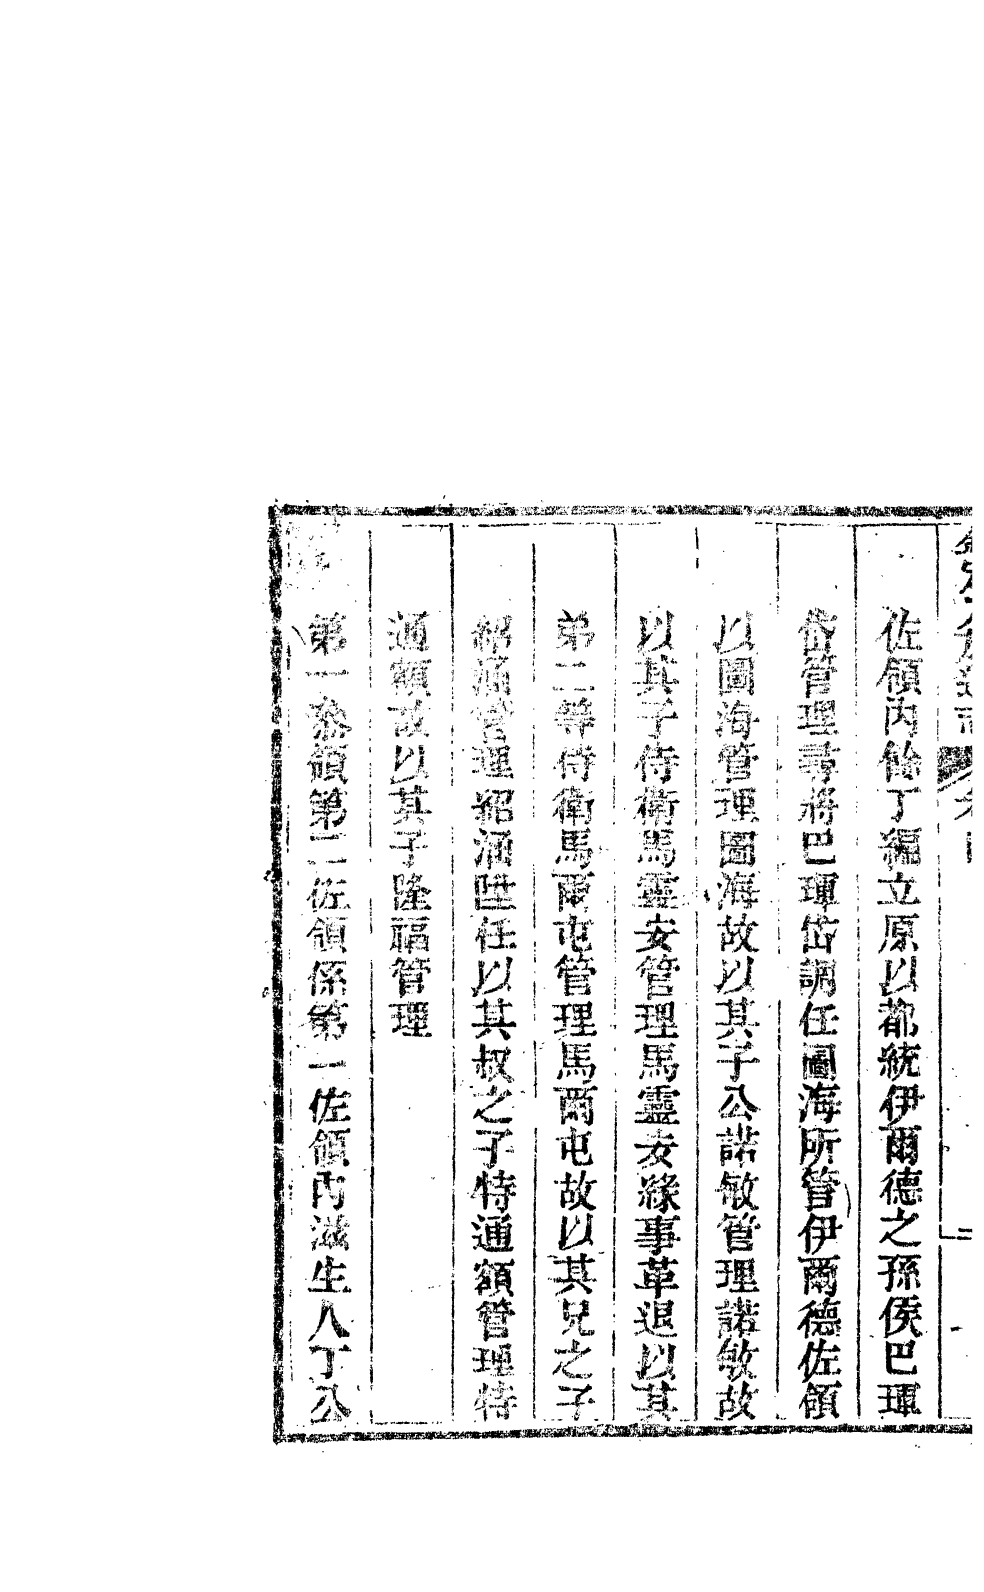 佐領内餘丁編立原以都統伊爾德之孫侯巴琿
岱管理尋將巴琿岱調任圖海所管伊爾德佐領
以圖海管理圖海故以其子公諾敏管理諾敏故
以其子侍衛馬靈安管理馬靈安緣事革退以其
弟二等侍衛馬爾屯管理馬爾屯故以其兄之子
紹涵管理紹涵陞任以其叔之子特通額管理特
通額故以其子隆福管理
第一叅領第二佐領係第一佐領内滋生人丁公